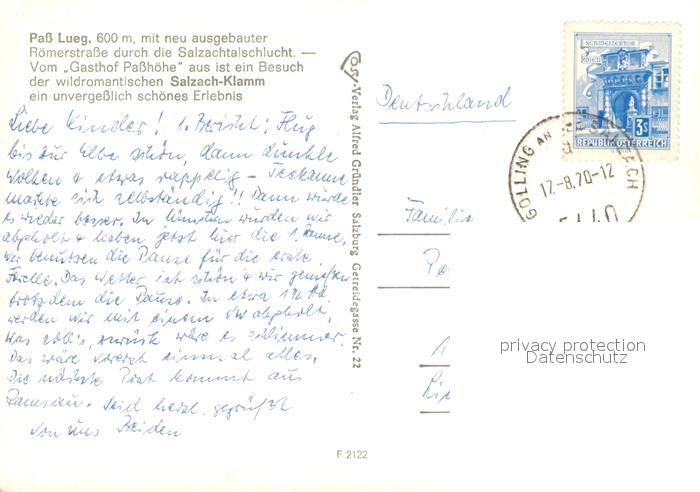 Paß Lueg, 600 m, mit neu ausgebauter
Römerstraße durch die Salzachtalschlucht. —
Vom „Gasthof Paßhöhe" aus ist ein Besuch
der wildromantischen Salzach-Klamm
ein unvergeßlich schönes Erlebnis
Liebe Kinder! 1. Bericht: Flug
bis zur Elbe schön, dann dunkle
Wolken + etwas rappelig –
machte sich selbständig!! Dann wurde
es wieder besser. In München wurden wir
abgeholt + haben jetzt hier die 1. Pause,
wir benutzen die Pause für die erste
Forelle. Das Wetter ist schön + wir genießen
trotzdem die Pause. In etwa 1½ Std.
werden wir mit einem VW abgeholt.
Was soll's, zurück wäre es schlimmer.
Das wäre vorerst einmal alles.
Die nächste Post kommt aus
Ramsau. Seid herzl. gegrüßt
von uns Beiden
Cosy-Verlag Alfred Gründler Salzburg Getreidegasse Nr. 22
F 2122
Deutschland
Familie
SCHWEIZERTOR
WIEN
3S
REPUBLIK ÖSTERREICH
GOLLING AN DER SALZACH
17.-8.70-12
5440
privacy protection
Datenschutz